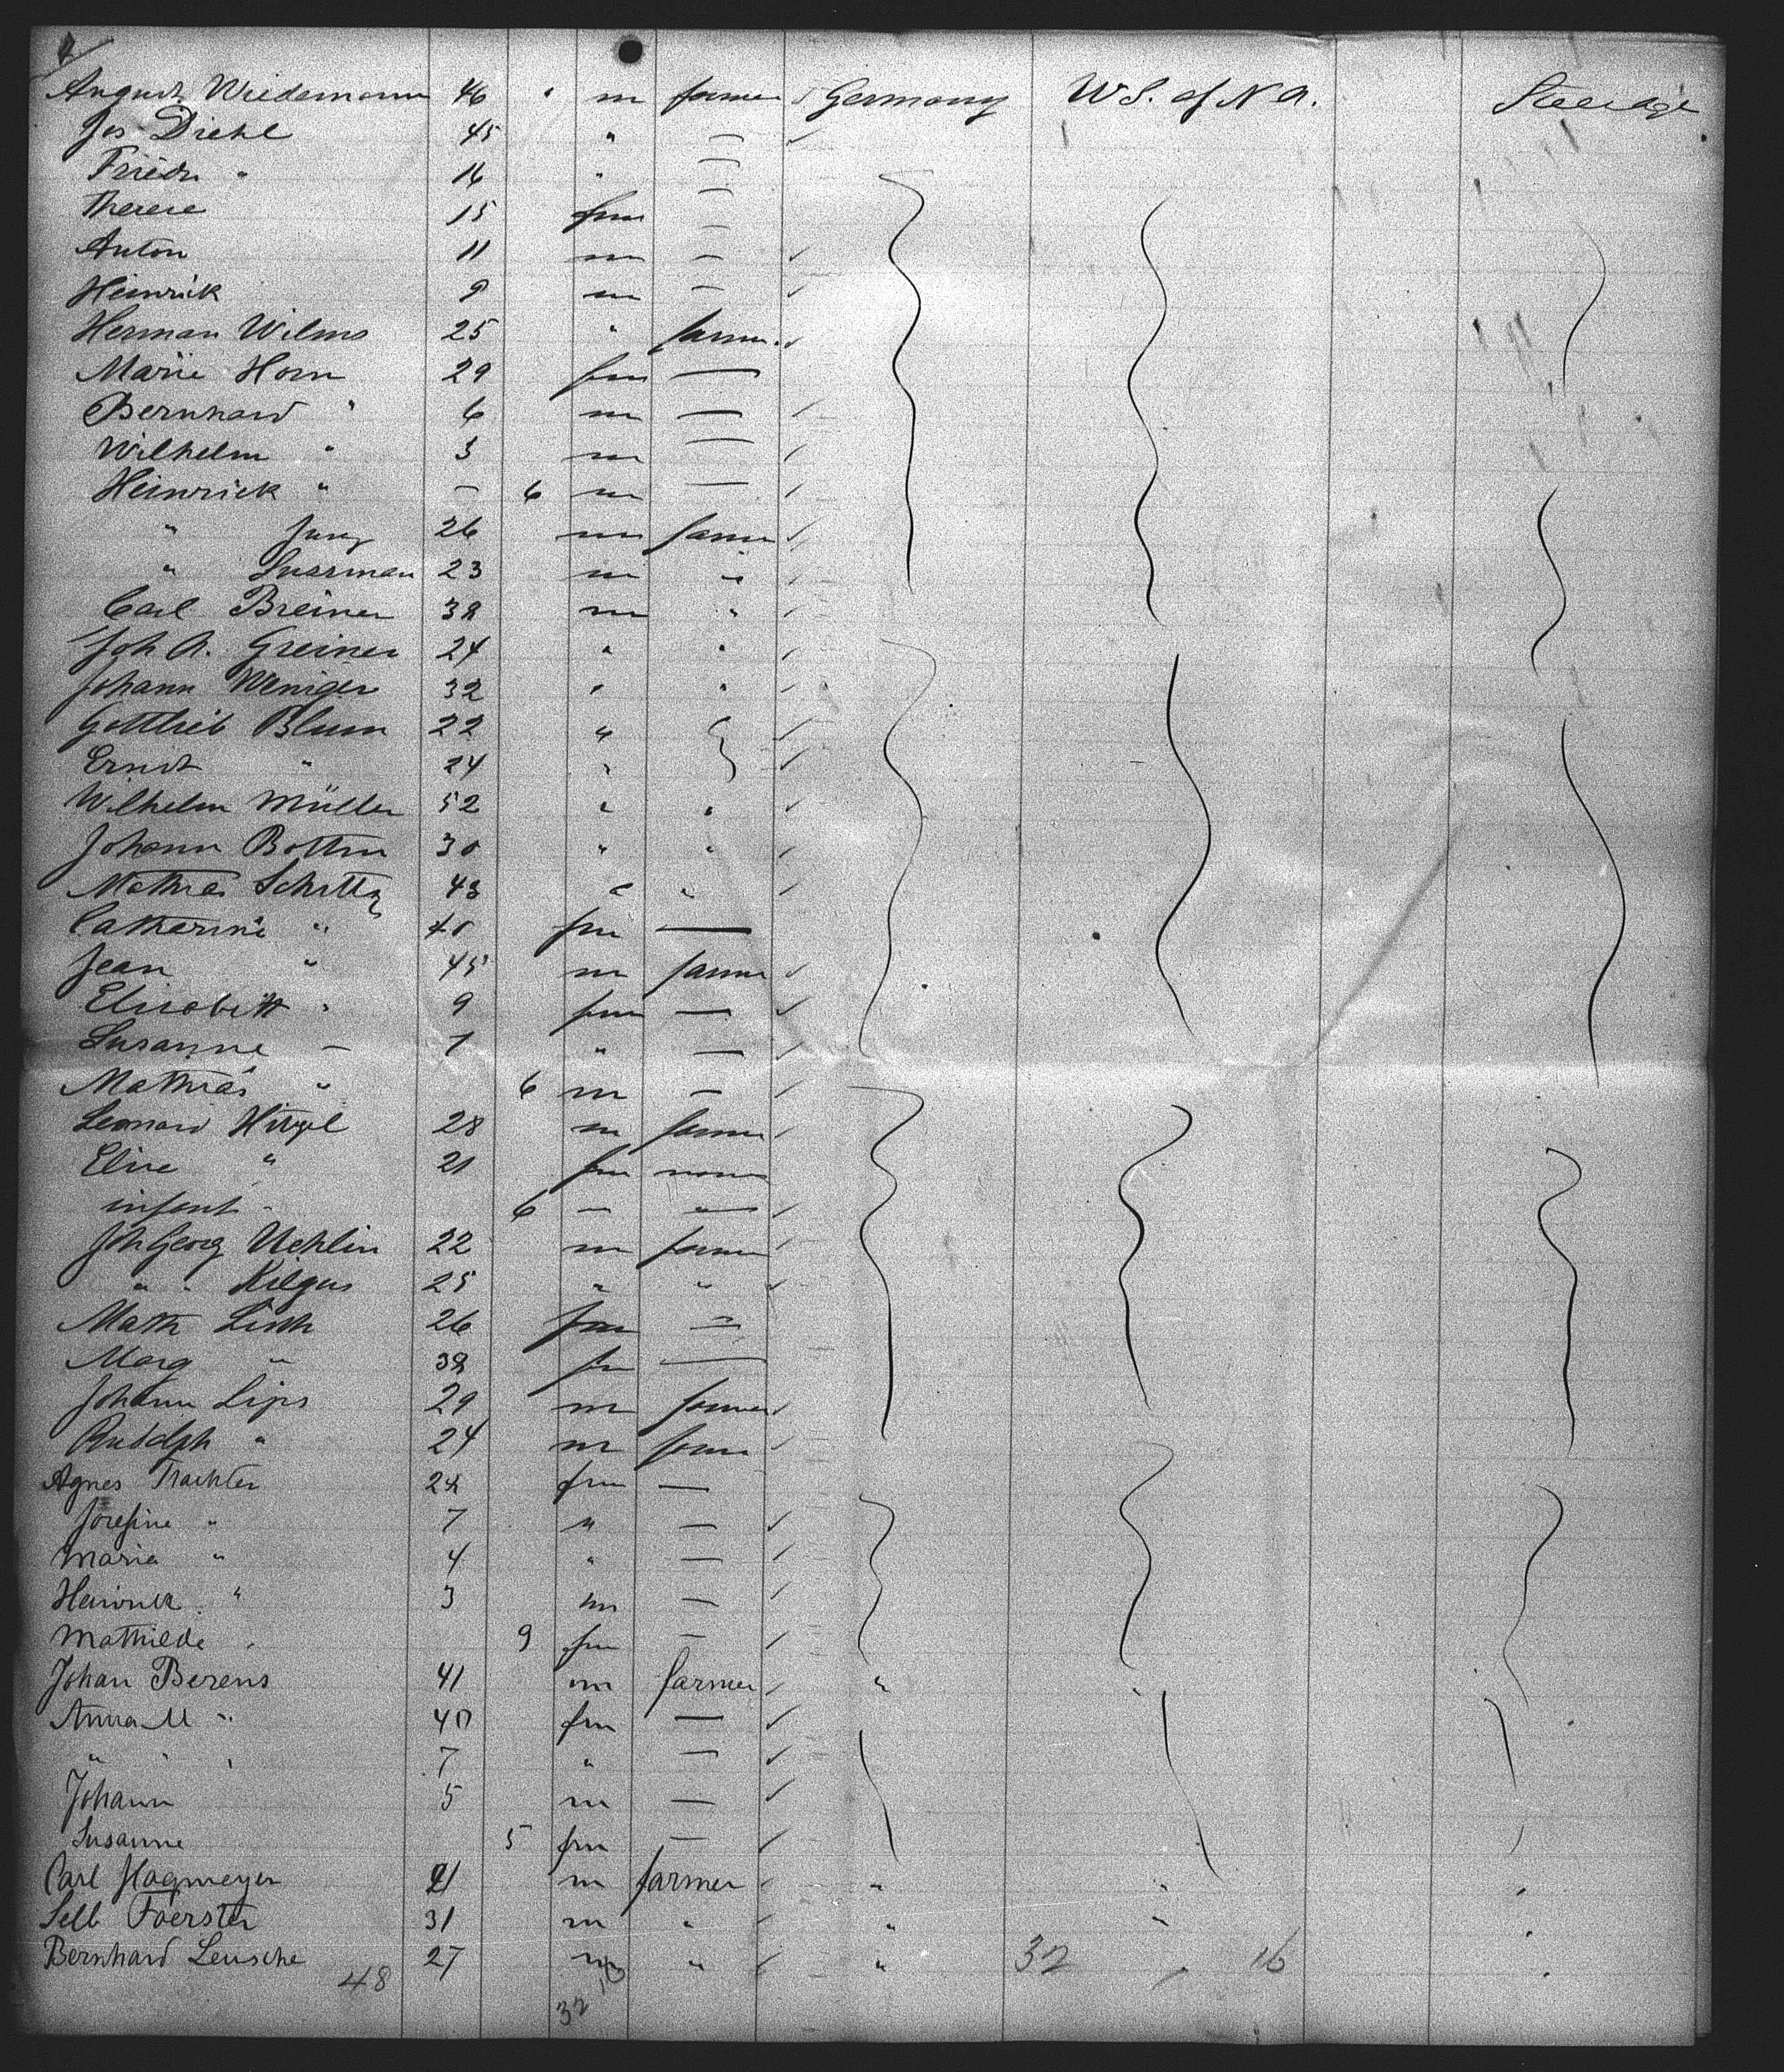 August Wiedemann 46 " m farmer Germany U.S. of N.A. Steerage
Jos Diehl 45 " —
Friedr " 16 " —
Therese 15 fm —
Anton 11 m —
Heinrich 9 m —
Herman Wilms 25 " farmer
Marie Horn 29 fm —
Bernhard " 6 m —
Wilhelm " 3 m —
Heinrich " — 6 m —
" Jung 26 m farmer
" 23 m "
Carl Breiner 38 m "
Joh A. Greiner 24 " "
Johann Weniger 32 " "
Gottlieb Blum 22 "
Ernst " 24 "
Wilhelm Müller 52 " "
Johann 30 " "
Mathias 43 " "
Catharine " 40 fm —
Jean " 45 m farmer
Elisabeth " 9 fm —
Susanne — 7 " —
Mathias " 6 m —
Leonard Hitzel 28 m farmer
Elise " 21 fm none
infant " 6 — "
Joh Georg Uehlin 22 m farmer
" " Kilgus 25 " "
Math 26 fm —
Marg " 38 fm —
Johann Lips 29 m farmer
Rudolph " 24 m farmer
Agnes Trachter fm —
Josefine " 7 " —
Maria " 4 " —
Heinrich " 3 m —
Mathilde " 9 fm —
Johan Berens 41 m farmer " "
Anna M " 40 fm —
" " " 7 " —
Johann 5 m —
Susanne 5 fm —
Carl Hagmeyer 21 m farmer " " "
Foerster 31 m " " " "
Bernhard Leusche 27 m " " 32 16 "
48
32 16